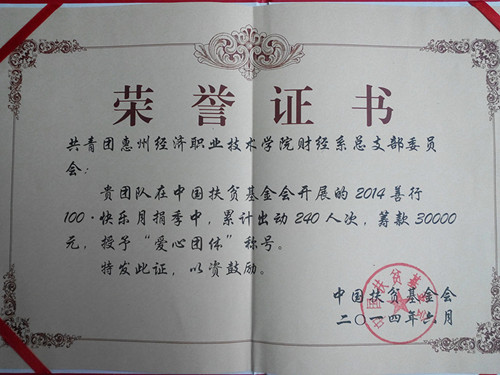 荣誉证书
共青团惠州经济职业技术学院财经系总支部委员
会：
贵团队在中国扶贫基金会开展的2014善行
100·快乐月捐季中，累计出动240人次，筹款30000
元，授予“爱心团体”称号。
特发此证，以资鼓励。
中国扶贫基金会
二〇一四年六月